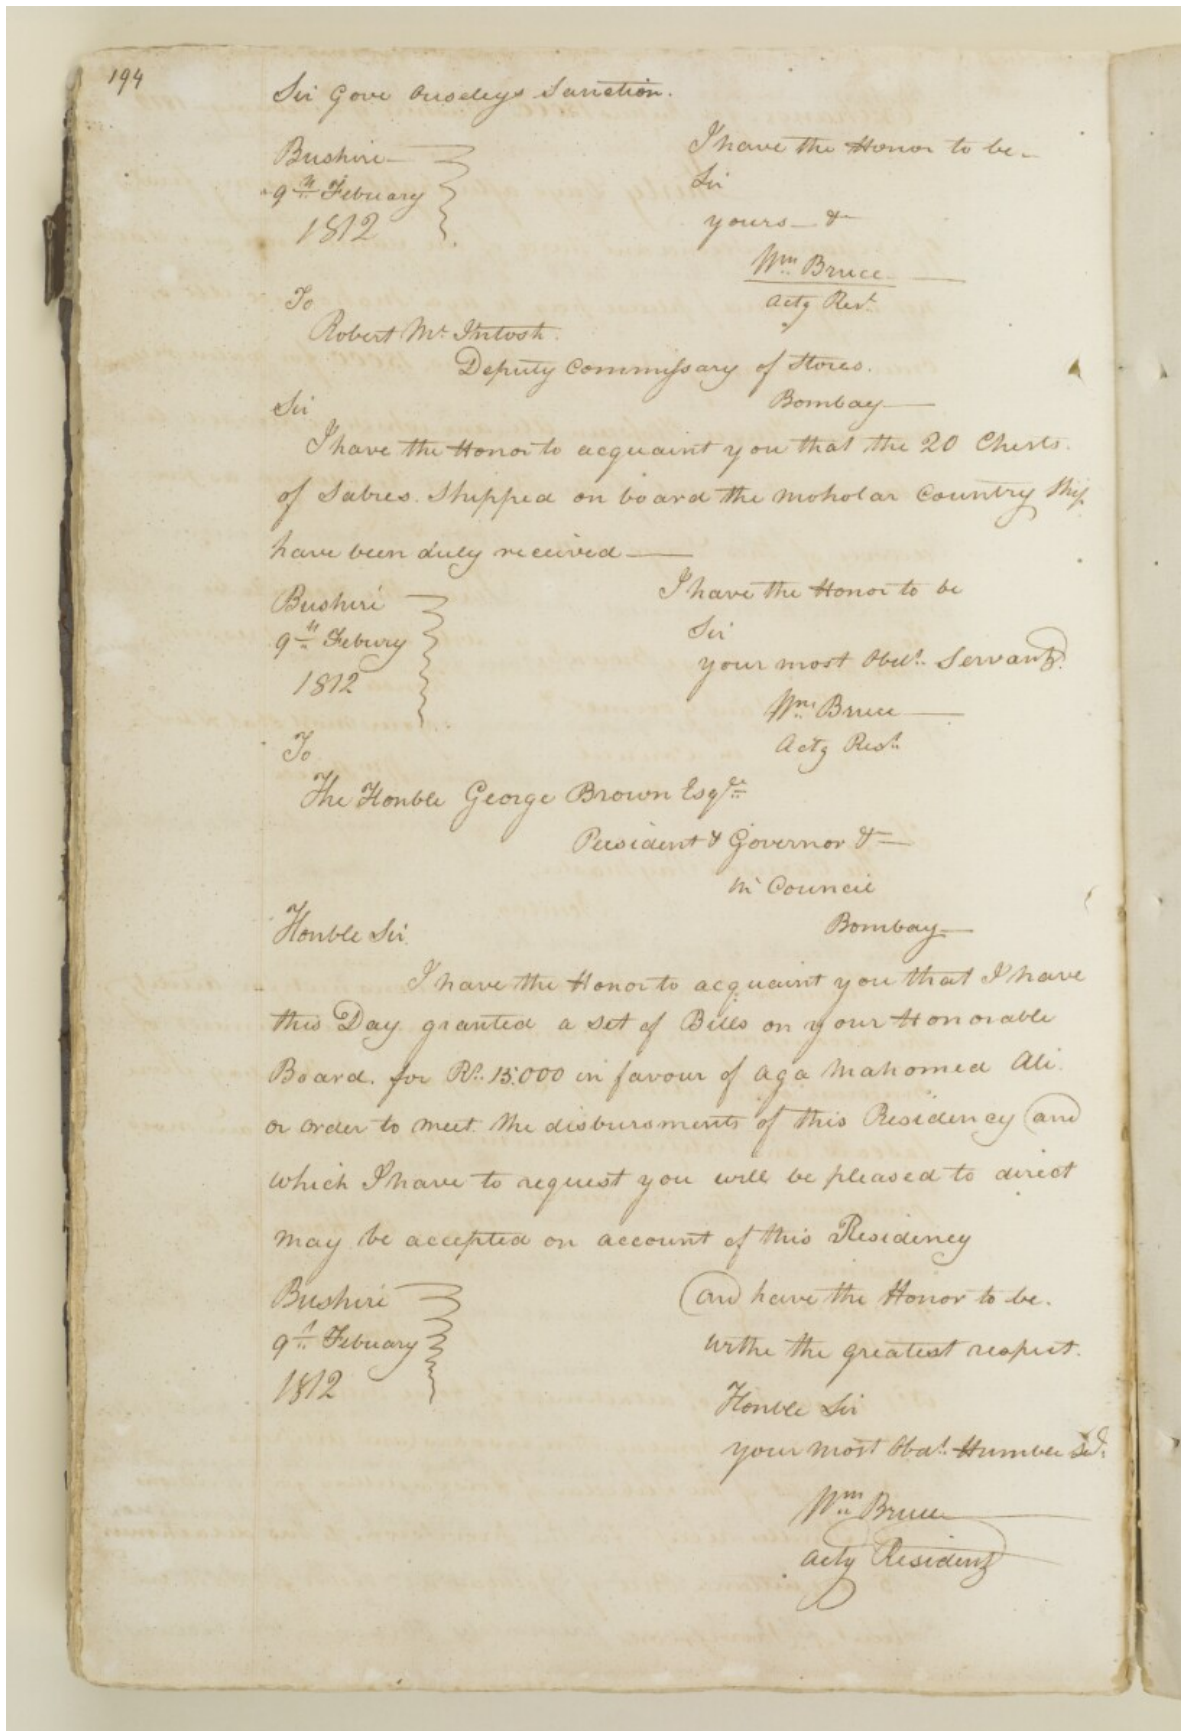 194
Sir Gore Ouseleys Sanction.
I have the Honor to be
Sir
yours &
Wm Bruce
Actg Rest.
Bushire
9th Febuary
1812
To
Robert Mc Intosh.
Deputy Commissary of Stores.
Bombay
Sir
I have the Honor to acquaint you that the 20 Chests.
of Sabres. Shipped on board the Moholar Country Ship
have been duly received
I have the Honor to be
Sir
your most Obedt. Servant.
Wm Bruce
Actg Rest.
Bushire
9th Febury
1812
To
The Honble George Brown Esqre
President & Governor &
in Council
Bombay
Honble Sir
I have the Honor to acquaint you that I have
this Day granted a set of Bills on your Honorable
Board. for Rs. 15.000 in favour of Aga Mahomed Ali.
or order to meet the disbursments of this Residency and
which I have to request you will be pleased to direct
may be accepted on account of this Residency
and have the Honor to be.
withe the greatest respect.
Honble Sir
your most Obdt. Humble Sert.
Wm Bruce
Actg Resident
Bushire
9th Febuary
1812